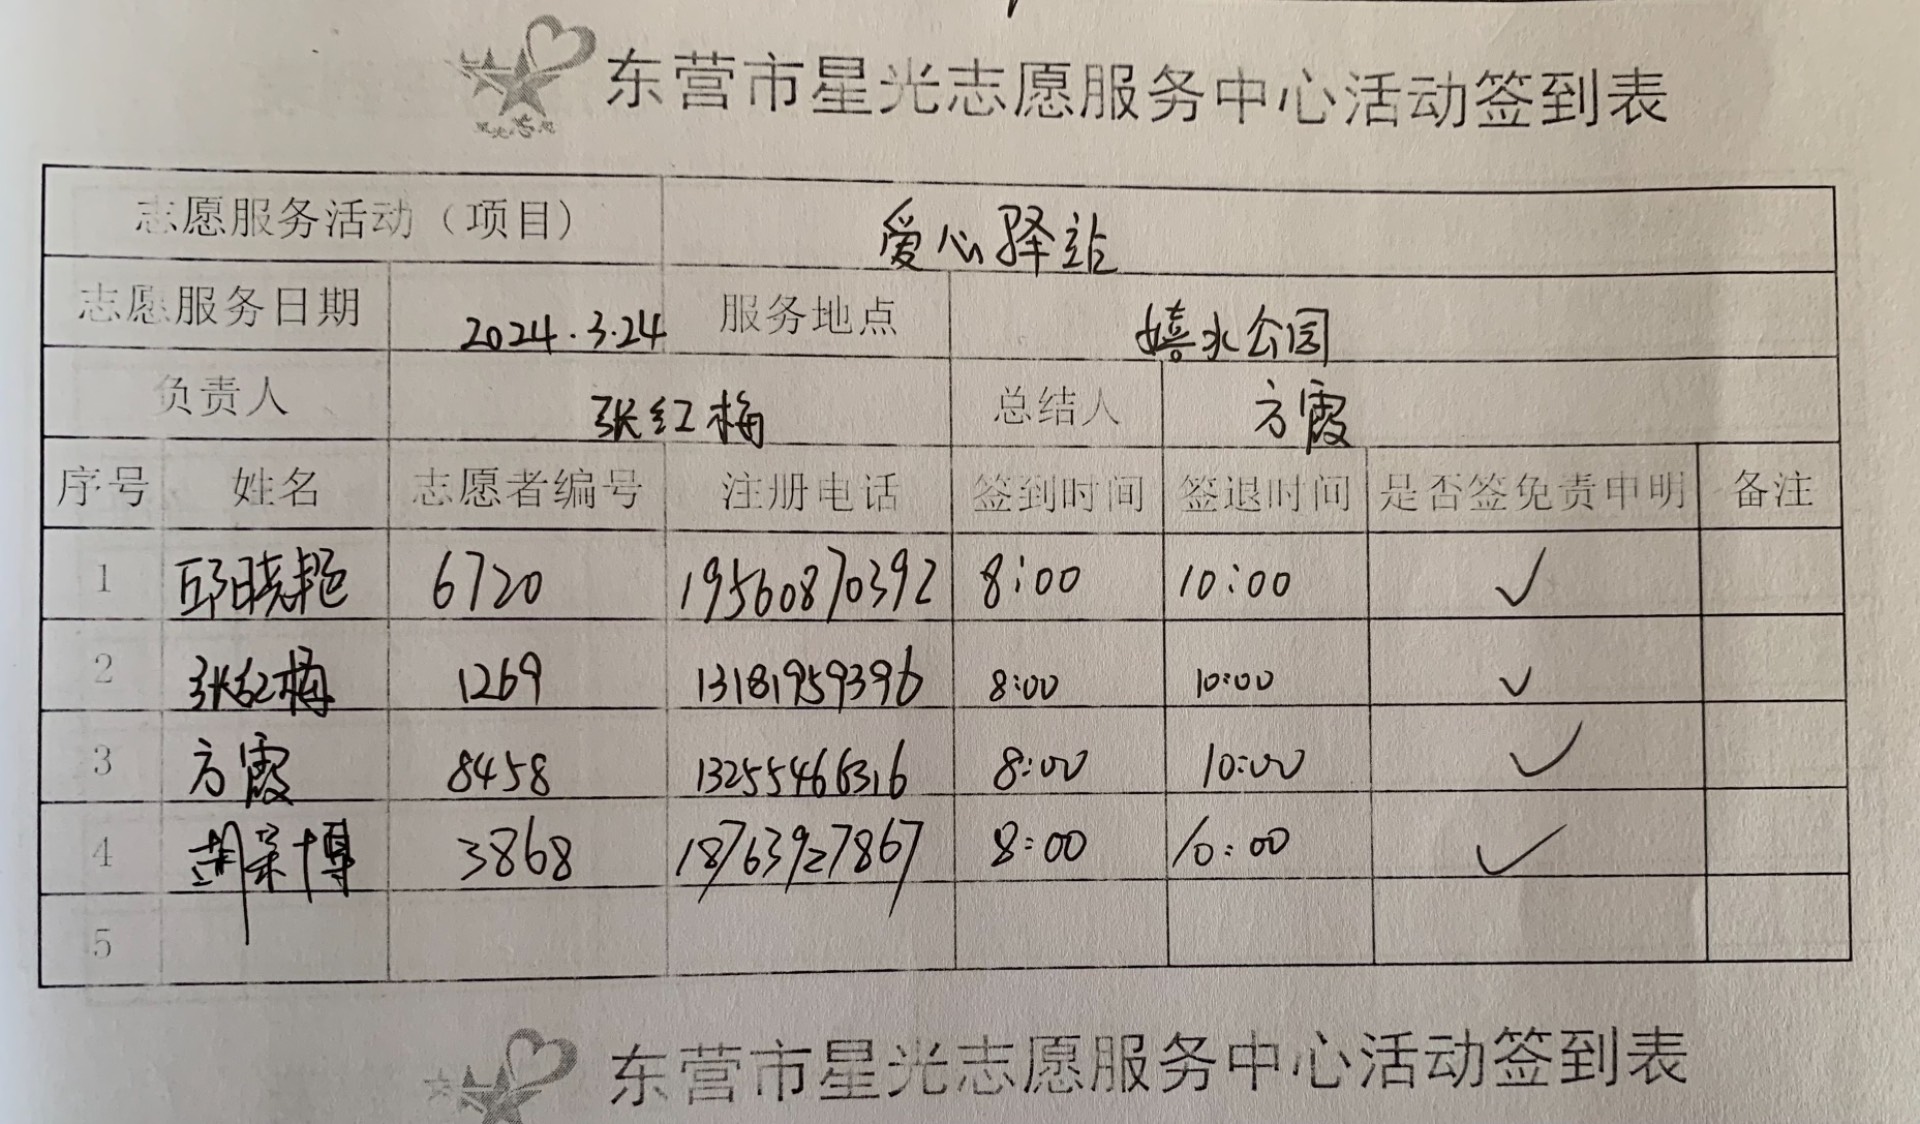 东营市星光志愿服务中心活动签到表
志愿服务活动（项目） 爱心驿站
志愿服务日期 2024.3.24 服务地点 嬉水公园
负责人 张红梅 总结人 方霞
序号 姓名 志愿者编号 注册电话 签到时间 签退时间 是否签免责申明 备注
1 邱晓艳 6720 19560870392 8:00 10:00 ✓
2 张红梅 1269 13181959396 8:00 10:00 ✓
3 方霞 8458 13255466316 8:00 10:00 ✓
4 3868 18763927867 8:00 10:00 ✓
5
东营市星光志愿服务中心活动签到表